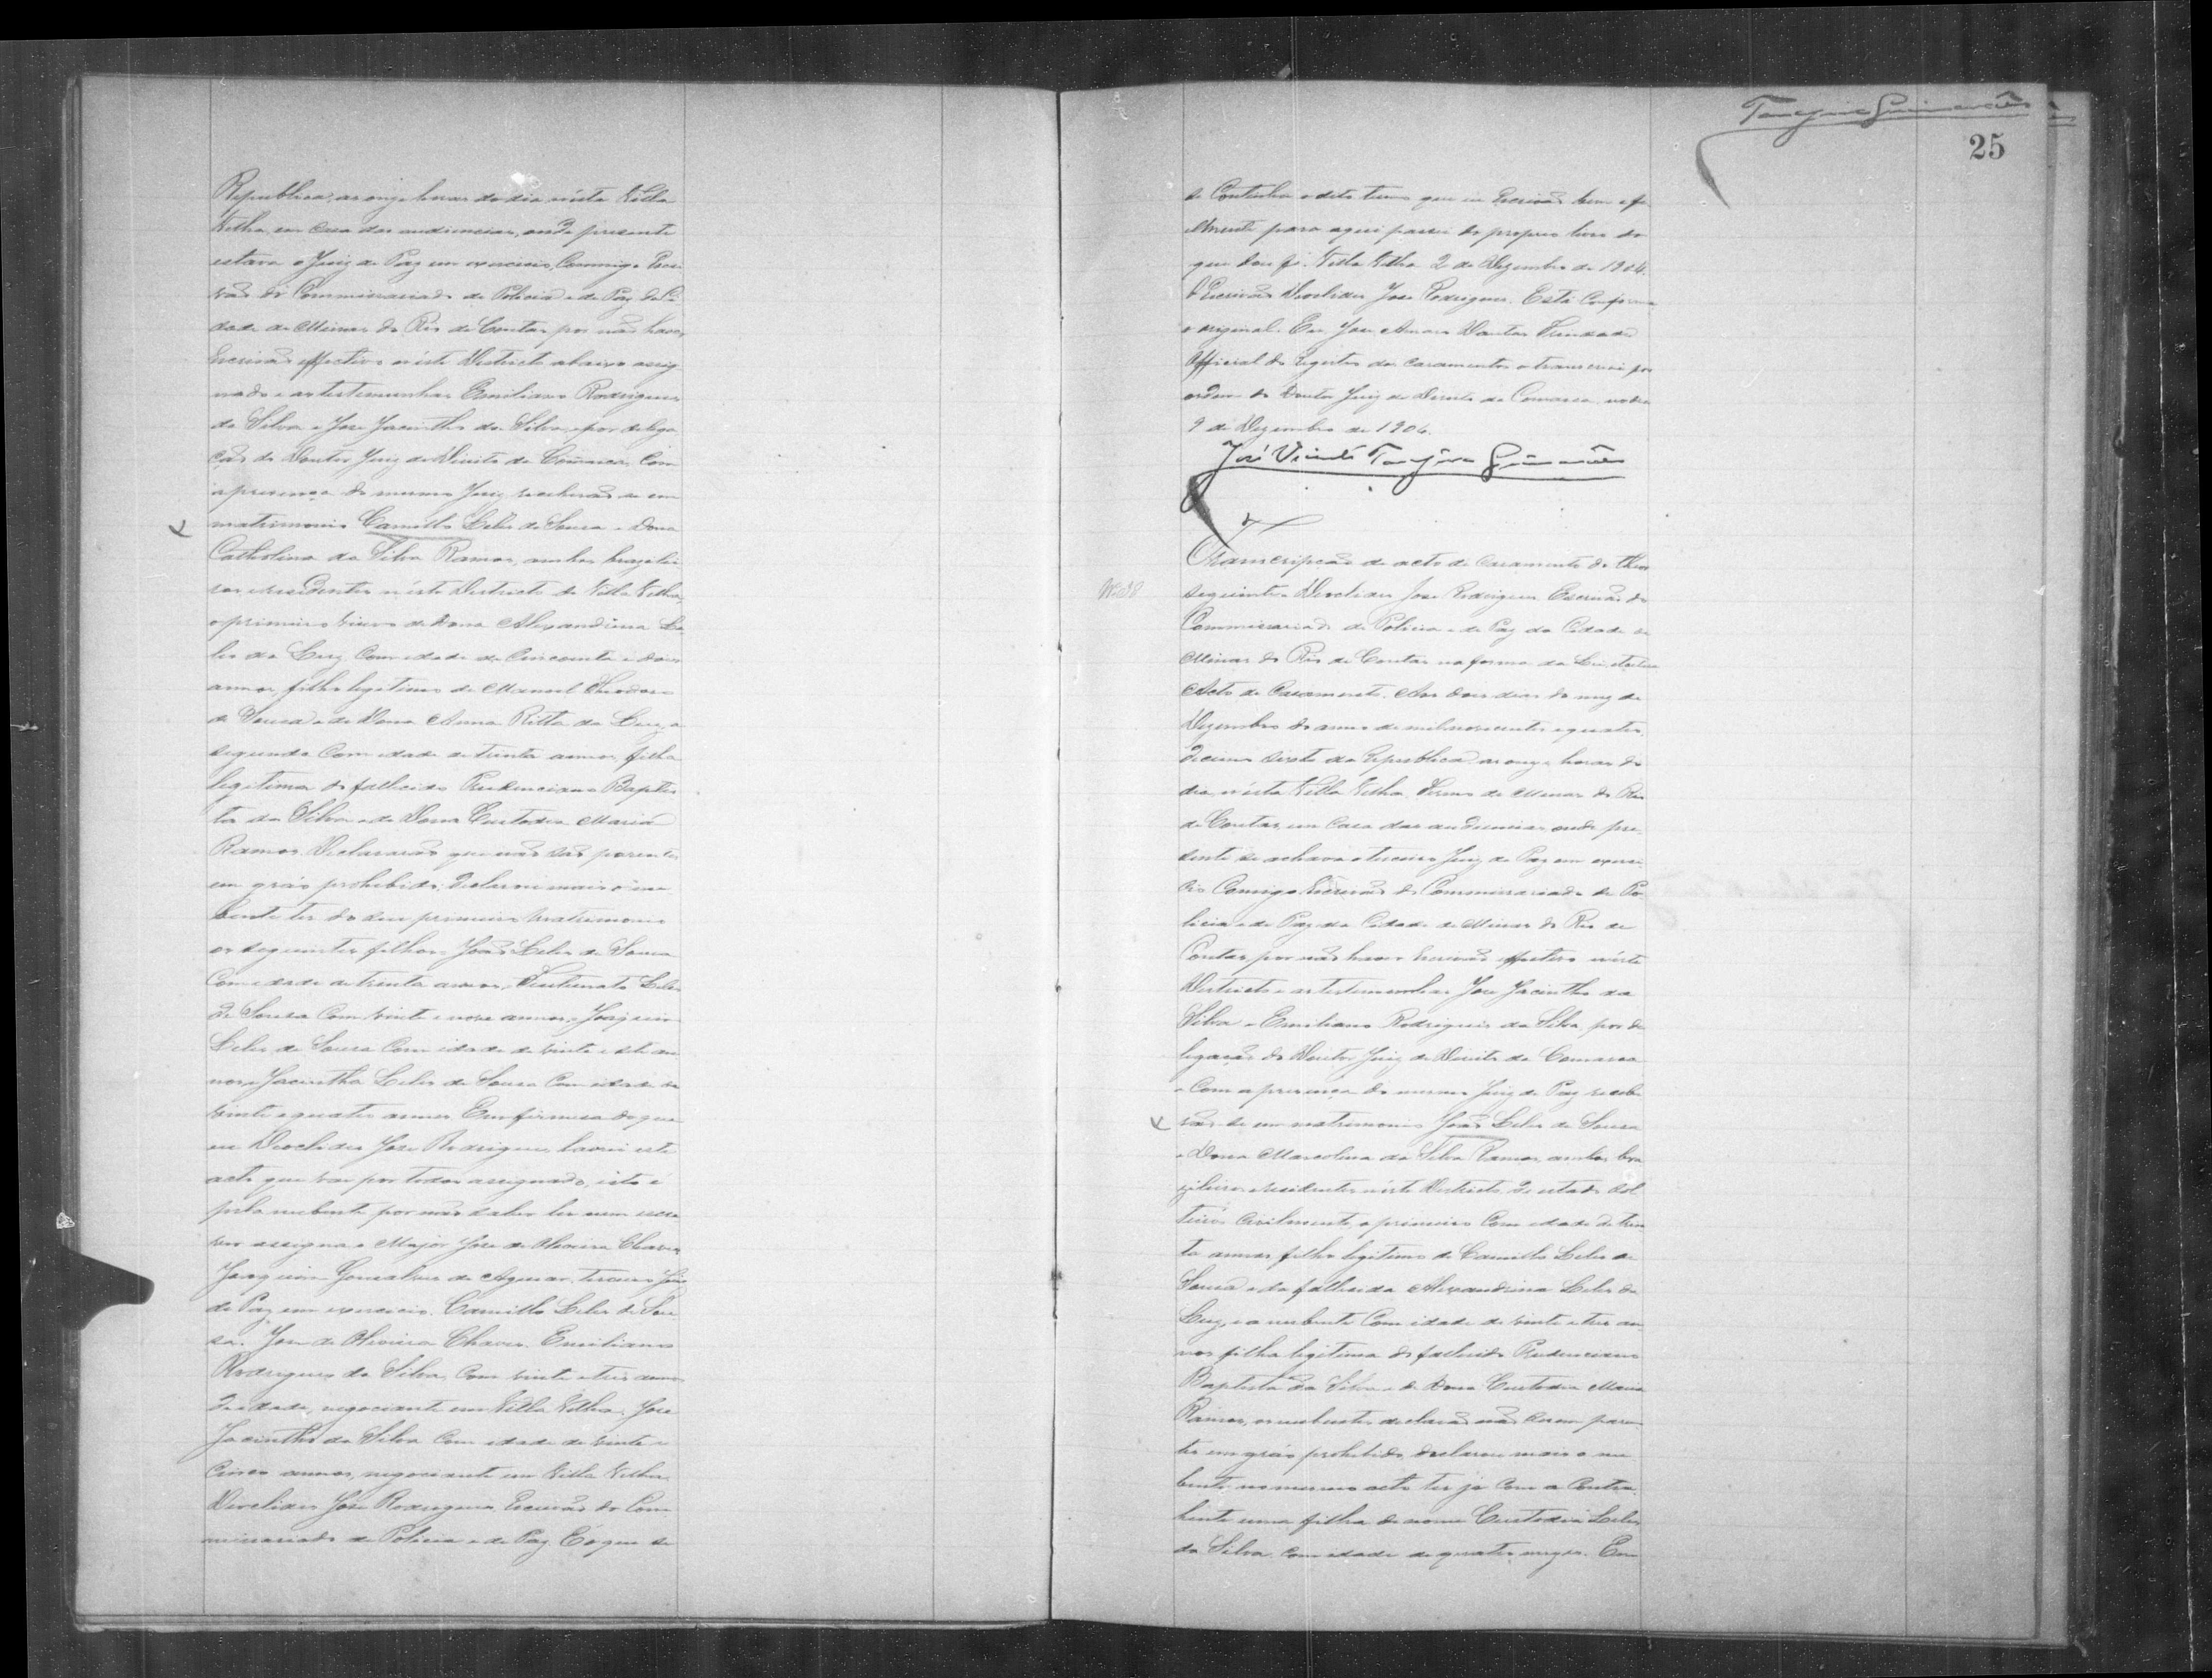 Republica, as onze horas do dia nésta Villa
Velha, em Casa das audiencias, onde presente
estava o Juiz de Paz em exercicio, Commigo Escri
vão do Commissariado de Policia e de Paz da Ci
dade de Minas do Rio de Contas por não haver
Escrivão effectivo néste Districto abaixo assig
nado e as testemunhas Emiliano Rodrigues
da Silva e Jose Jacintho da Silva, e por delega
ção do Doutor Juiz de Direito da Comarca, Com
a presença do mesmo Juiz receberão se em
matrimonio Camillo Lelis de Sousa e Dona
Catholina da Silva Ramos, ambos brazilei
ros residentes néste Districto de Villa Velha,
o primeiro viuvo de Dona Alexandrina Le
lis da Luz, Com edade de Cincoenta e dois
annos, filho legitimo de Manoel Theodoro
de Sousa e de Dona Anna Ritta da Luz, a
segunda Com edade de trinta annos, filha
legitima do fallecido Prudenciano Baptis
ta da Silva e de Dona Custodia Maria
Ramos. Declararão que não são parentes
em gráo prohibido; declarou mais o nu
bente ter do seu primeiro matrimonio
os seguintes filhos: João Lelis de Sousa
Com edade de trinta annos, Lelis
de Sousa Com vinte e nove annos, Joaquim
Lelis de Sousa Com idade de vinte e sete an
nos, e Jacintha Lelis de Sousa Com idade de
vinte e quatro annos. Em firmesa do que
eu Dioclides Jose Rodrigues, lavrei este
acto que vai por todos assignado, isto e
pela nubente por não saber ler nem escre
ver assigna o Major Jose de Oliveira Chaves
Joaquim Gonsalves de Aguiar, terceiro Juiz
de Paz em exercicio. Camillo Lelis de Sou
sa. Jose de Oliveira Chaves. Emiliano
Rodrigues da Silva, Com vinte e tres annos
de edade, negociante em Villa Velha. Jose
Jacintho da Silva Com idade de vinte e
Cinco annos, negociante em Villa Velha.
Dioclides Jose Rodrigues Escrivão do Com
missariado de Policia e de Paz. É o que se
Tanajura Guimarães
25
se Continha o dito termo que eu Escrivão bem e fi
elmente para aqui passei do proprio livro do
que dou fé. Villa Velha 2 de Dezembro de 1904.
O Escrivão Dioclides Jose Rodrigues. Está Conforme
o original. Eu Jose Amaro Dantas Trindade
Official do Registro de Casamentos o transcrevi por
ordem do Doutor Juiz de Direito da Comarca, no dia
9 de Dezembro de 1904.
José Vicente Tanajura Guimarães
Transcripção de acto de Casamento do theor
Nº 38 seguinte: Dioclides Jose Rodrigues Escrivão do
Commissariado de Policia e de Paz da Cidade de
Minas do Rio de Contas na forma da Lei etc.
Acto de Casamento. Aos dois dias do mez de
Dezembro do anno de mil novecentos e quatro,
decimo sexto da Republica, as onze horas do
dia, nésta Villa Velha, Termo de Minas do Rio
de Contas, em Casa das audiencias, onde pre
sente se achava o terceiro Juiz de Paz em exerci
cio Comigo Escrivão do Commissariado de Po
licia e de Paz da Cidade de Minas do Rio de
Contas por não haver Escrivão effectivo néste
Districto e as testemunhas Jose Jacintho da
Silva e Emiliano Rodrigues da Silva, por de
legação do Doutor Juiz de Direito da Comarca
e Com a presença do mesmo Juiz de Paz recebe
rão se em matrimonio João Lelis de Sousa
e Dona Marcolina da Silva Ramos, ambos bra
zileiros residentes néste Districto, de estado sol
teiros Civilmente, o primeiro Com edade de trin
ta annos, filho legitimo de Camillo Lelis de
Sousa e da fallecida Alexandrina Lelis da
Luz, e a nubente Com idade de vinte e tres an
nos filha legitima do fallecido Prudenciano
Baptista da Silva e de Dona Custodia Maria
Ramos, os nubentes declarão não serem paren
tes em gráo prohibido, declarou mais o nu
bente no mesmo acto ter ja Com a Contra
hente uma filha de nome Custodia Lelis
da Silva, com idade de quatro mezes. Em